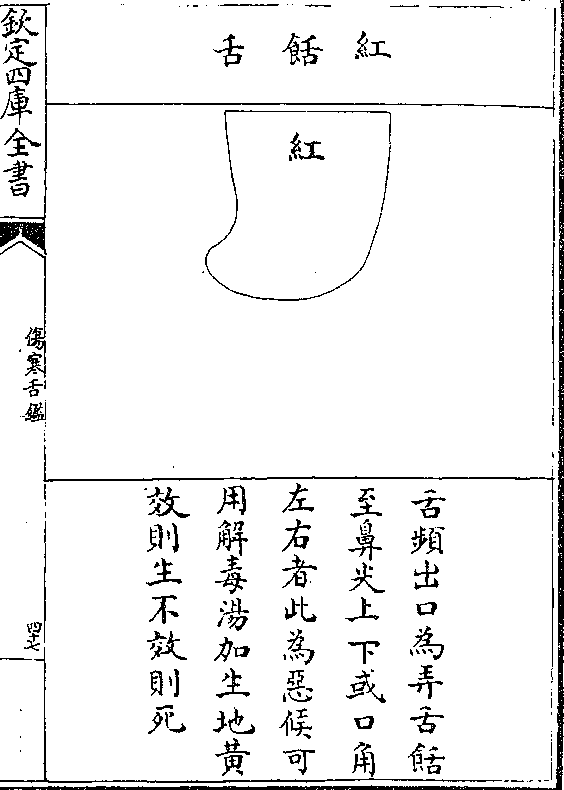 紅餂舌
紅
舌頻出口為弄舌餂
至鼻尖上下或口角
左右者此為惡候可
用解毒湯加生地黃
效則生不效則死
欽定四庫全書
傷寒舌鑑
四十七